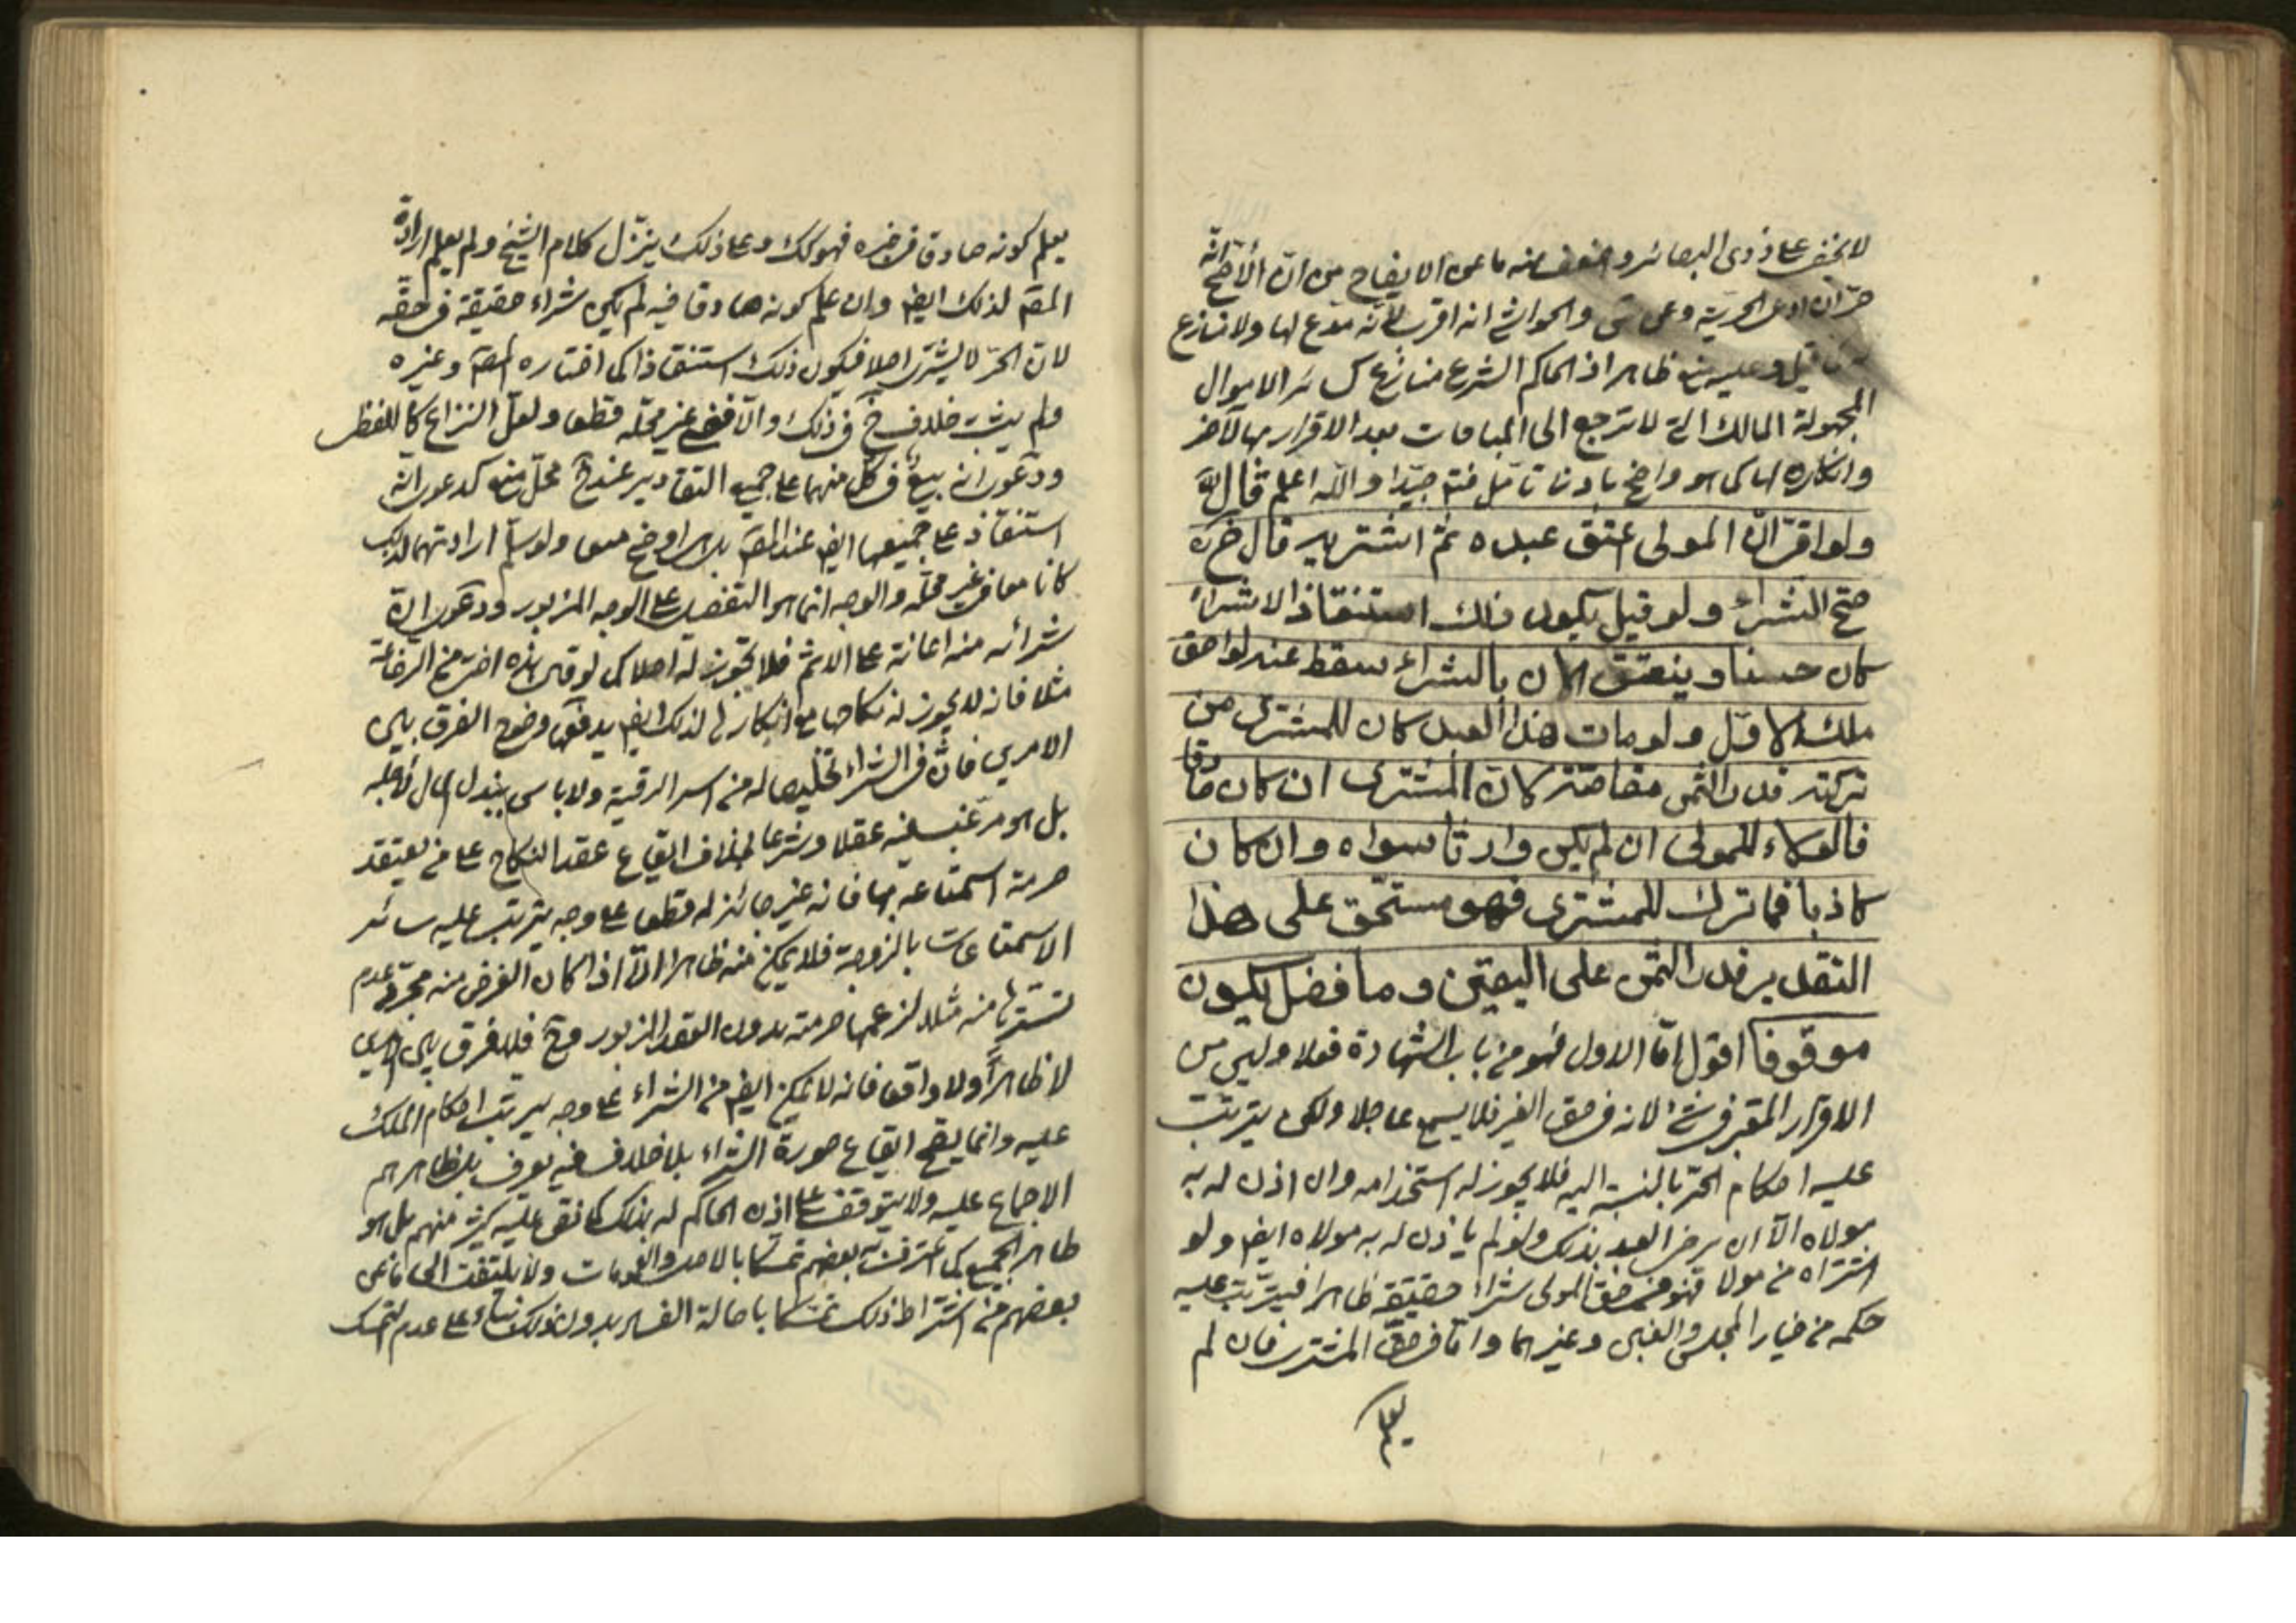 لا يخفى على ذوى البصائر واضعف منه ما عن الايضاح من ان الاصح انه
حر ان ادعى الحرية وعن والحواشى انه اقرب لانه مدع لها ولا منازع
قيل وعليه منع ظاهر اذ الحاكم الشرع منازع كسائر الاموال
المجهولة المالك التى لا ترجع الى المباحات بعد الاقرار بها لآخر
وانكاره لها كما هو واضح بادنى تامل فتم جيدا والله اعلم قال
ولو اقر ان المولى اعتق عبده ثم اشتريه قال
صح الشراء ولو قيل يكون ذلك استنقاذا لا شراء
كان حسنا وينعتق الان بالشراء سقط عنه لواحق
ملك الاول ولو مات هذا العبد كان للمشترى من
تركته قدر الثمن مقاصة كان المشترى ان كان صادقا
فالولاء للمولى ان لم يكن وارثا سواه وان كان
كاذبا فما ترك للمشترى فهو مستحق على هذا
التقدير قدر الثمن على اليقين وما فضل يكون
موقوفا اقول اما الاول فهو من باب الشهادة فعلا وليس من
الاقرار المقبر فى شئ لانه فى حق الغير فلا يسمع عاجلا ولكن يترتب
عليه احكام الحر بالنسبة اليه فلا يجوز له استخدامه وان اذن له به
مولاه الا ان يرضى العبد بذلك ولو لم ياذن له به مولاه ايض ولو
اشتراه من مولاه فهو فى حق المولى شراء حقيقة ظاهرا فيترتب عليه
حكمه من خيار المجلس والغبن وغيرهما واما فى حق المشترى فان لم
يعلم
يعلم كونه صادقا فى خبره فهو كك وعلى ذلك ينزل كلام الشيخ ولم يعلم ارادة
المص لذلك ايض وان علم كونه صادقا فيه لم يكن شراء حقيقة فى حقه
لان الحر لا يشترى اصلا فيكون ذلك استنقاذا كما اختاره المص وغيره
ولم يثبت خلاف فى ذلك والا فهو غير محله قطعا ولعل النزاع كاللفظى
ودعوى انه بيع فى كل منهما على جميع التقادير عند محل منع كدعوى انه
استنقاذ على جميعها ايض عند المص بل هو اوضح منعا ولو سلم ارادتهما لذلك
كانا معا فى غير محله والوجه انما هو التفصيل على الوجه المزبور ودعوى ان
شرائه منه اعانة على الاثم فلا يجوز له اصلا كما لو قال هذه اختى من الرضاعة
مثلا فانه لا يجوز له نكاحها مع انكارها لذلك ايض يدفعها وضوح الفرق بين
الامرين فان فى الشراء تخليصا له من اسر الرقية ولا باس ببذل المال لاجله
بل هو مرغب فيه عقلا وشرعا بخلاف ايقاع عقد النكاح على من يعتقد
حرمة استمتاعه بها فانه غير جائز له قطعا على وجه يترتب عليه سائر
الاستمتاعات بالزوجة فلا يمكن منه ظاهرا الا اذا كان الغرض منه مجرد عدم
تسترها منه مثلا لزعمها حرمته بدون العقد المزبور وح فلا فرق بين الامرين
لا ظاهرا ولا واقعا فانه لا يمكن ايض من الشراء على وجه يرتب احكام الملك
عليه وانما يصح ايقاع صورة الشراء بلا خلاف فيه يعرف بل ظاهرهم
الاجماع عليه ولا يتوقف على اذن الحاكم له بذلك كما نص عليه كثير منهم بل هو
ظاهر الجميع كما اعترف به بعضهم تمسكا بالاصل والعمومات ولا يلتفت الى ما عن
بعضهم من اشتراط ذلك تمسكا باصالة الفساد بدون ذلك بناء على عدم التمسك